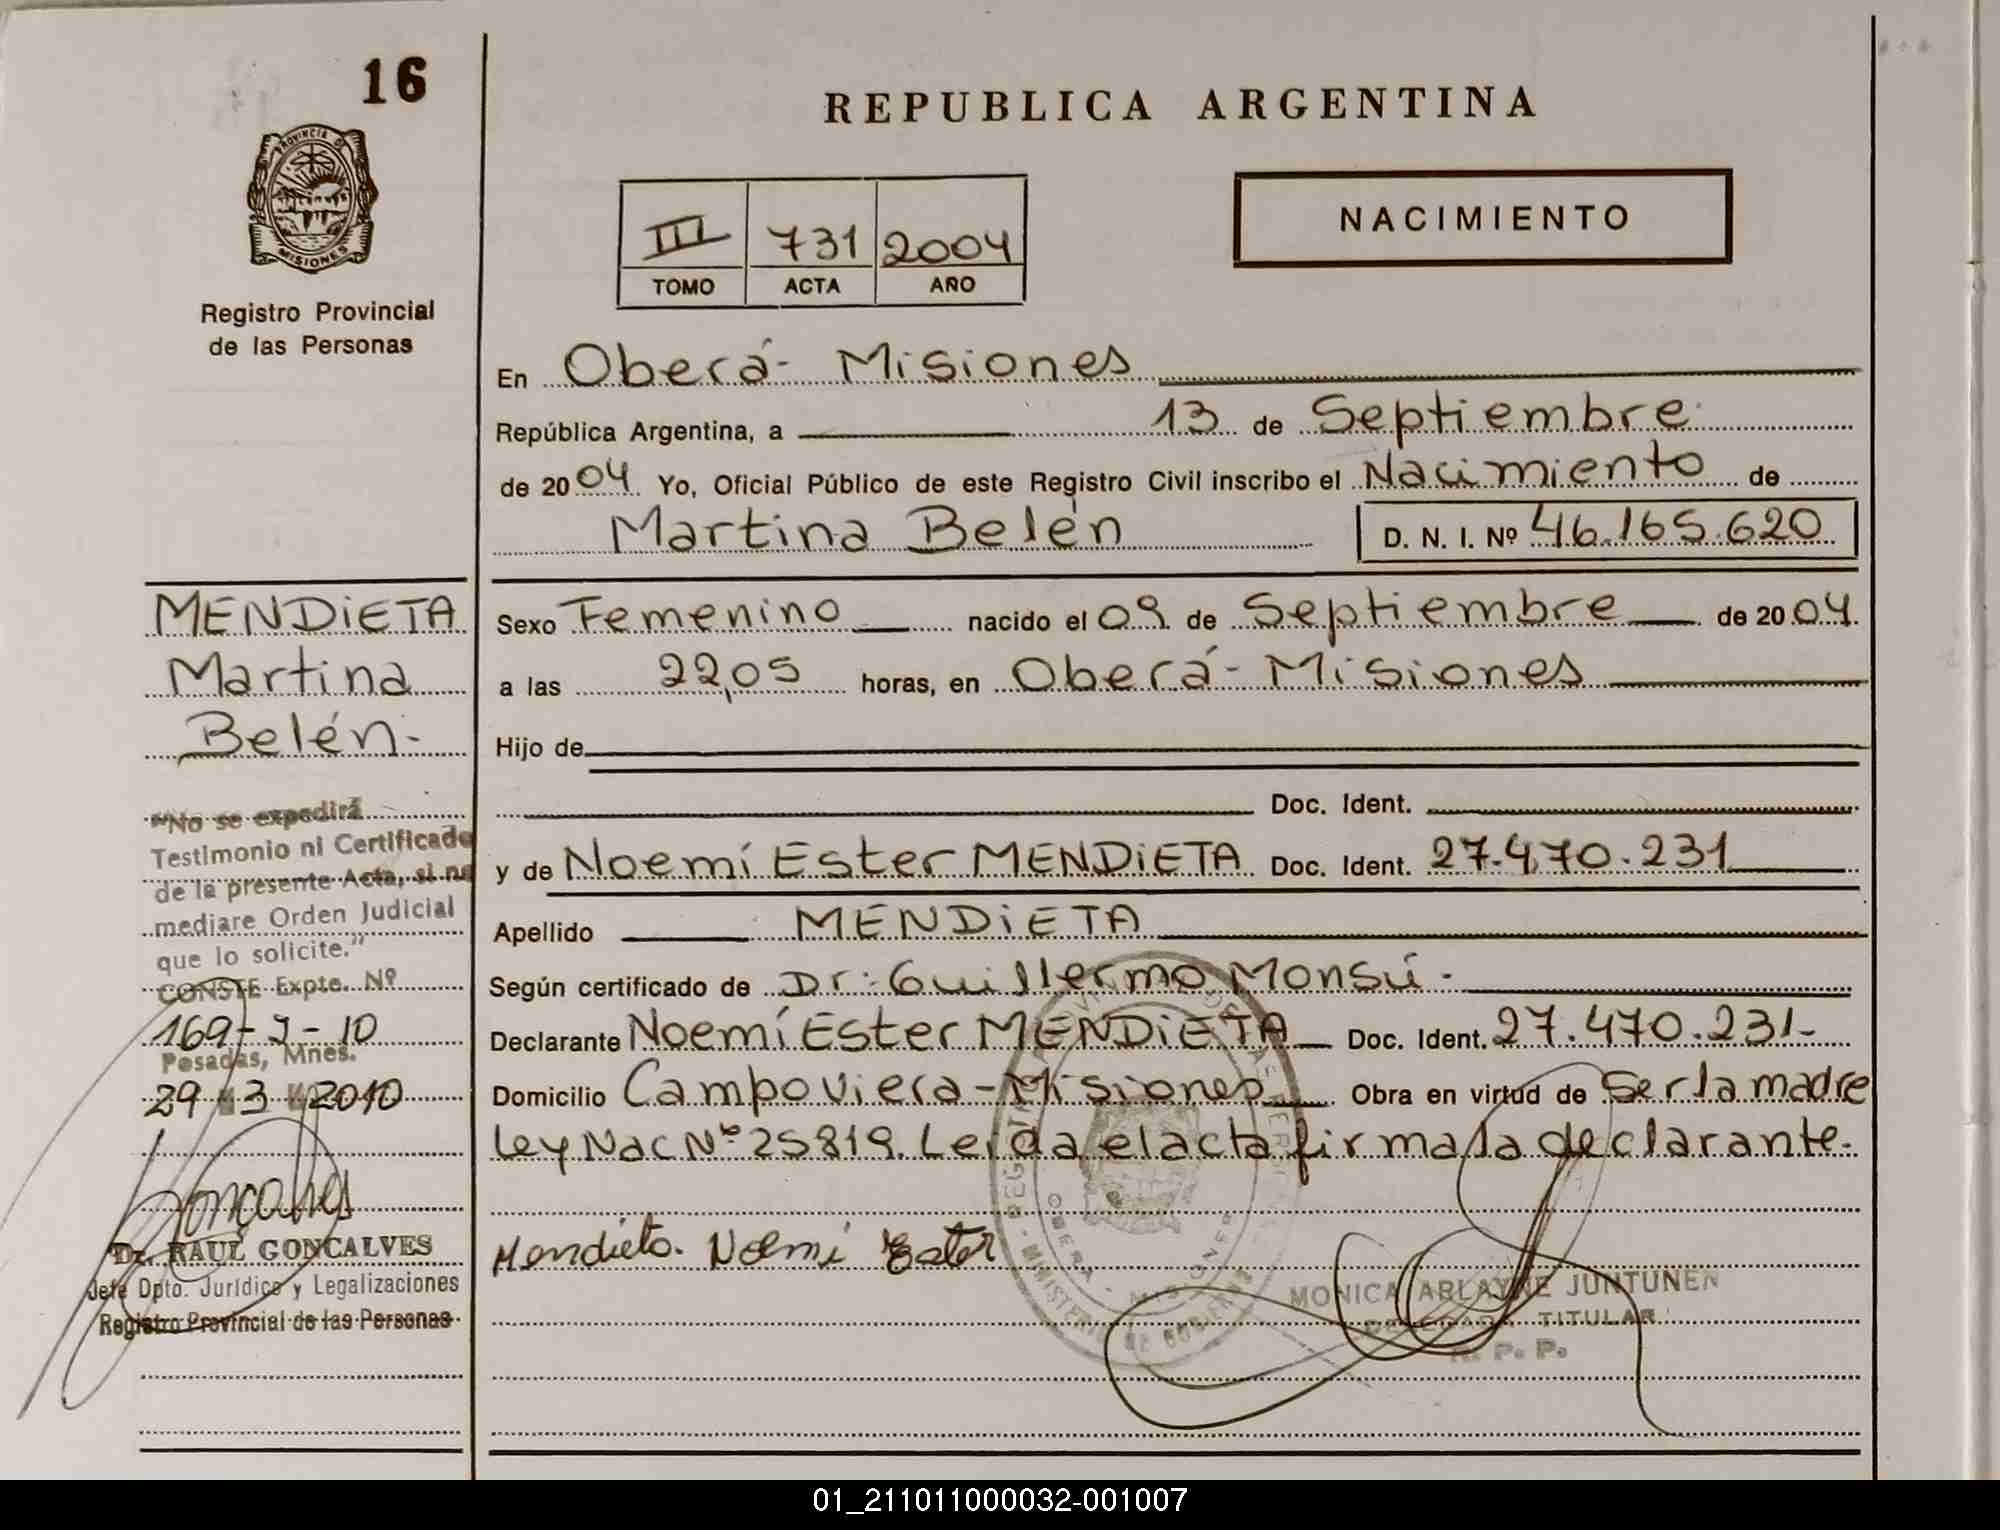 16
PROVINCIA DE
MISIONES
Registro Provincial
de las Personas
REPUBLICA ARGENTINA
III 731 2004
TOMO ACTA AÑO
NACIMIENTO
En Oberá - Misiones
República Argentina, a 13 de Septiembre
de 2004 Yo, Oficial Público de este Registro Civil inscribo el Nacimiento de
Martina Belén D. N. I. Nº 46.165.620
MENDiETA
Martina
Belén.-
Sexo Femenino nacido el 09 de Septiembre de 2004.
a las 22,05 horas, en Oberá - Misiones
Hijo de
Doc. Ident.
y de Noemí Ester MENDiETA Doc. Ident. 27.470.231
Apellido MENDiETA
Según certificado de Dr: Guillermo Monsú.-
Declarante Noemí Ester MENDiETA Doc. Ident. 27.470.231-
Domicilio Campo Viera - Misiones Obra en virtud de Ser la madre
Ley Nac Nº 25819. Leida el acta firma la declarante.-
"No se expedirá
Testimonio ni Certificado
de la presente Acta, si no
mediare Orden Judicial
que lo solicite."
CONSTE Expte. Nº
169- -10
Posadas, Mnes.
29 3 2010
Goncalves
Dr. RAUL GONCALVES
Jefe Dpto. Jurídico y Legalizaciones
Registro Provincial de las Personas
Mendieta. Noemi Ester
OBERA - MISIONES
MINISTERIO DE GOBIERNO
MONICA ARLAYNE JUNTUNEN
DELEGADA TITULAR
R. P. P.
01_211011000032-001007